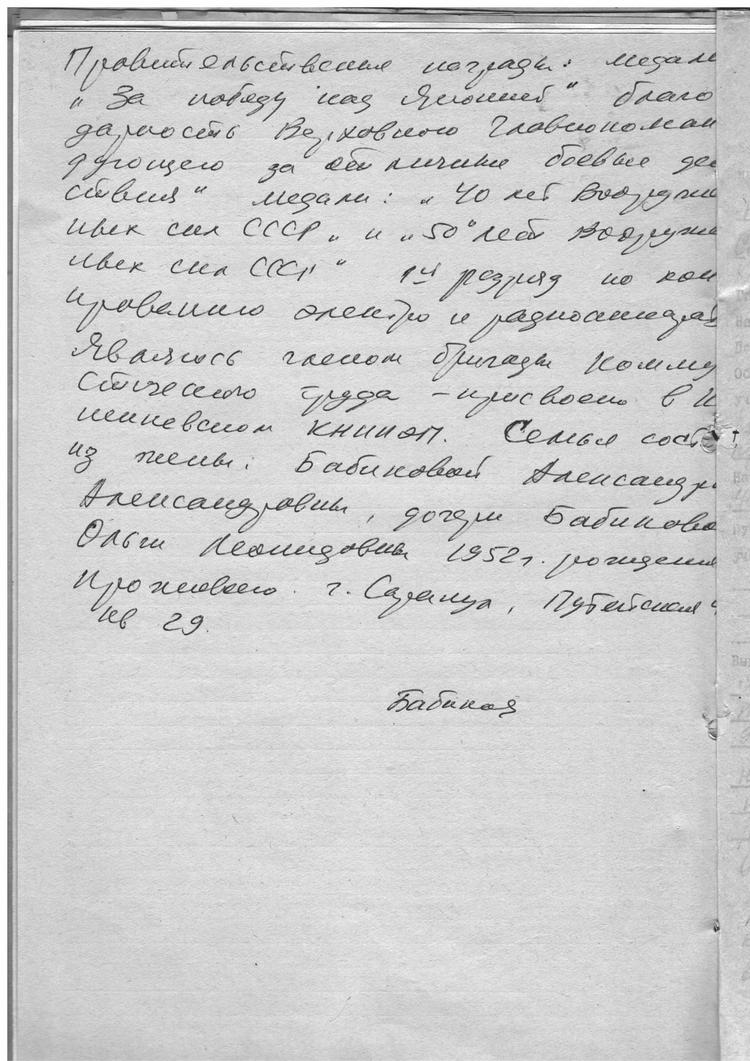 Правительственные награды: медали
„За победу над Японией" благо
дарность Верховного Главнокоман
дующего за отличные боевые де
ствия" медали: „40 лет Вооруже
ных сил СССР„ и „50 лет Вооруже
ных сил СССР" 1ый разряд по кон
ированию электро и радиоаппарат
Являюсь членом бригады Комму
стического труда – присвоено в
КНИИЭП. Семья сост
из жены: Бабиковой Александр
Александровны, дочери Бабиково
Ольги Леонидовны 1952г. рождения
Проживаю г. Сарапул, Путейская
кв 29.
Бабиков